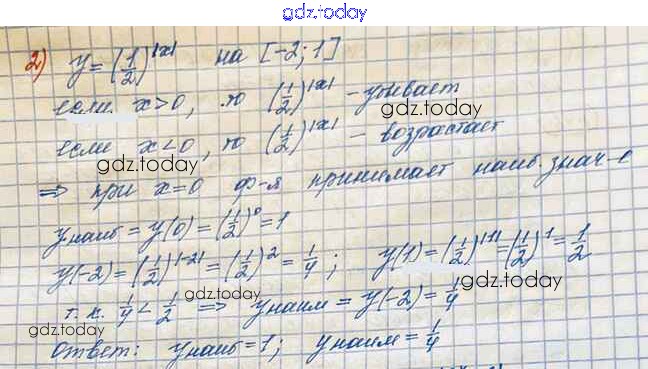 gdz.today
2) y=(1/2)^|x| на [-2;1]
если x>0, то (1/2)^|x| - убывает
gdz.today
если x<0, то (1/2)^|x| - возрастает
gdz.today
⇒ при x=0 ф-я принимает наиб. знач-е
yнаиб = y(0) = (1/2)^0 = 1
y(-2) = (1/2)^|-2| = (1/2)^2 = 1/4; y(1) = (1/2)^|1| = (1/2)^1 = 1/2
gdz.today
gdz.today
т.к. 1/4 < 1/2 ⇒ yнаим = y(-2) = 1/4
gdz.today
gdz.today
Ответ: yнаиб = 1; yнаим = 1/4